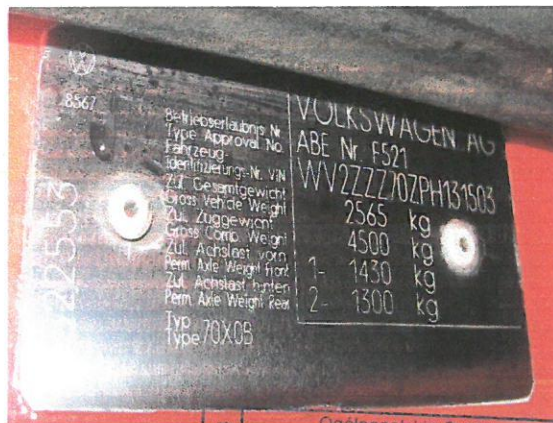 8567
22553
Betriebserlaubnis Nr.
Type Approval No.
Fahrzeug-
Identifizierungs-Nr. VIN
Zul. Gesamtgewicht
Gross Vehicle Weight
Zul. Zuggewicht
Gross Comb. Weight
Zul. Achslast vorn
Perm. Axle Weight Front
Zul. Achslast hinten
Perm. Axle Weight Rear
Typ
Type 70X0B
VOLKSWAGEN AG
ABE Nr. F521
WV2ZZZ70ZPH131503
2565 kg
4500 kg
1- 1430 kg
2- 1300 kg